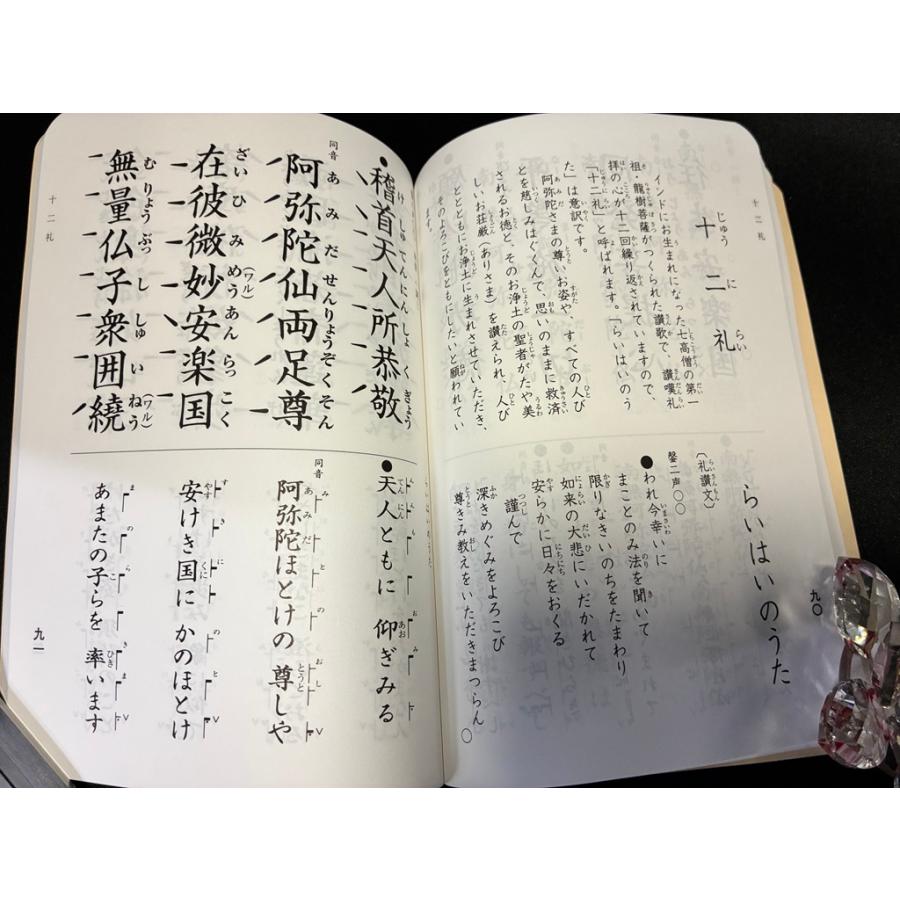 十二礼
十二礼
インドにお生まれになった七高僧の第一
祖・龍樹菩薩がつくられた讃歌で、讃嘆礼
拝の心が十二回繰り返されていますので、
「十二礼」と呼ばれます。「らいはいのう
た」は意訳です。
阿弥陀さまの尊いお姿や、すべての人び
とを慈しみはぐくんで、思いのままに救済
されるお徳と、そのお浄土の聖者がたや美
しいお荘厳（ありさま）を讃えられ、人び
とともにお浄土に生まれさせていただき、
そのよろこびをともにしたいと願われてい
ます。
らいはいのうた
九〇
（礼讃文）
磬二声〇〇
●われ今幸いに
まことのみ法を聞いて
限りなきいのちをたまわり
如来の大悲にいだかれて
安らかに日々をおくる
謹んで
深きめぐみをよろこび
尊きみ教えをいただきまつらん〇
●稽首天人所恭敬
同音 阿弥陀仙両足尊
在彼微妙安楽国
無量仏子衆囲繞
十二礼
●天人ともに 仰ぎみる
同音 阿弥陀ほとけの 尊しや
安けき国に かのほとけ
あまたの子らを 率います
九一